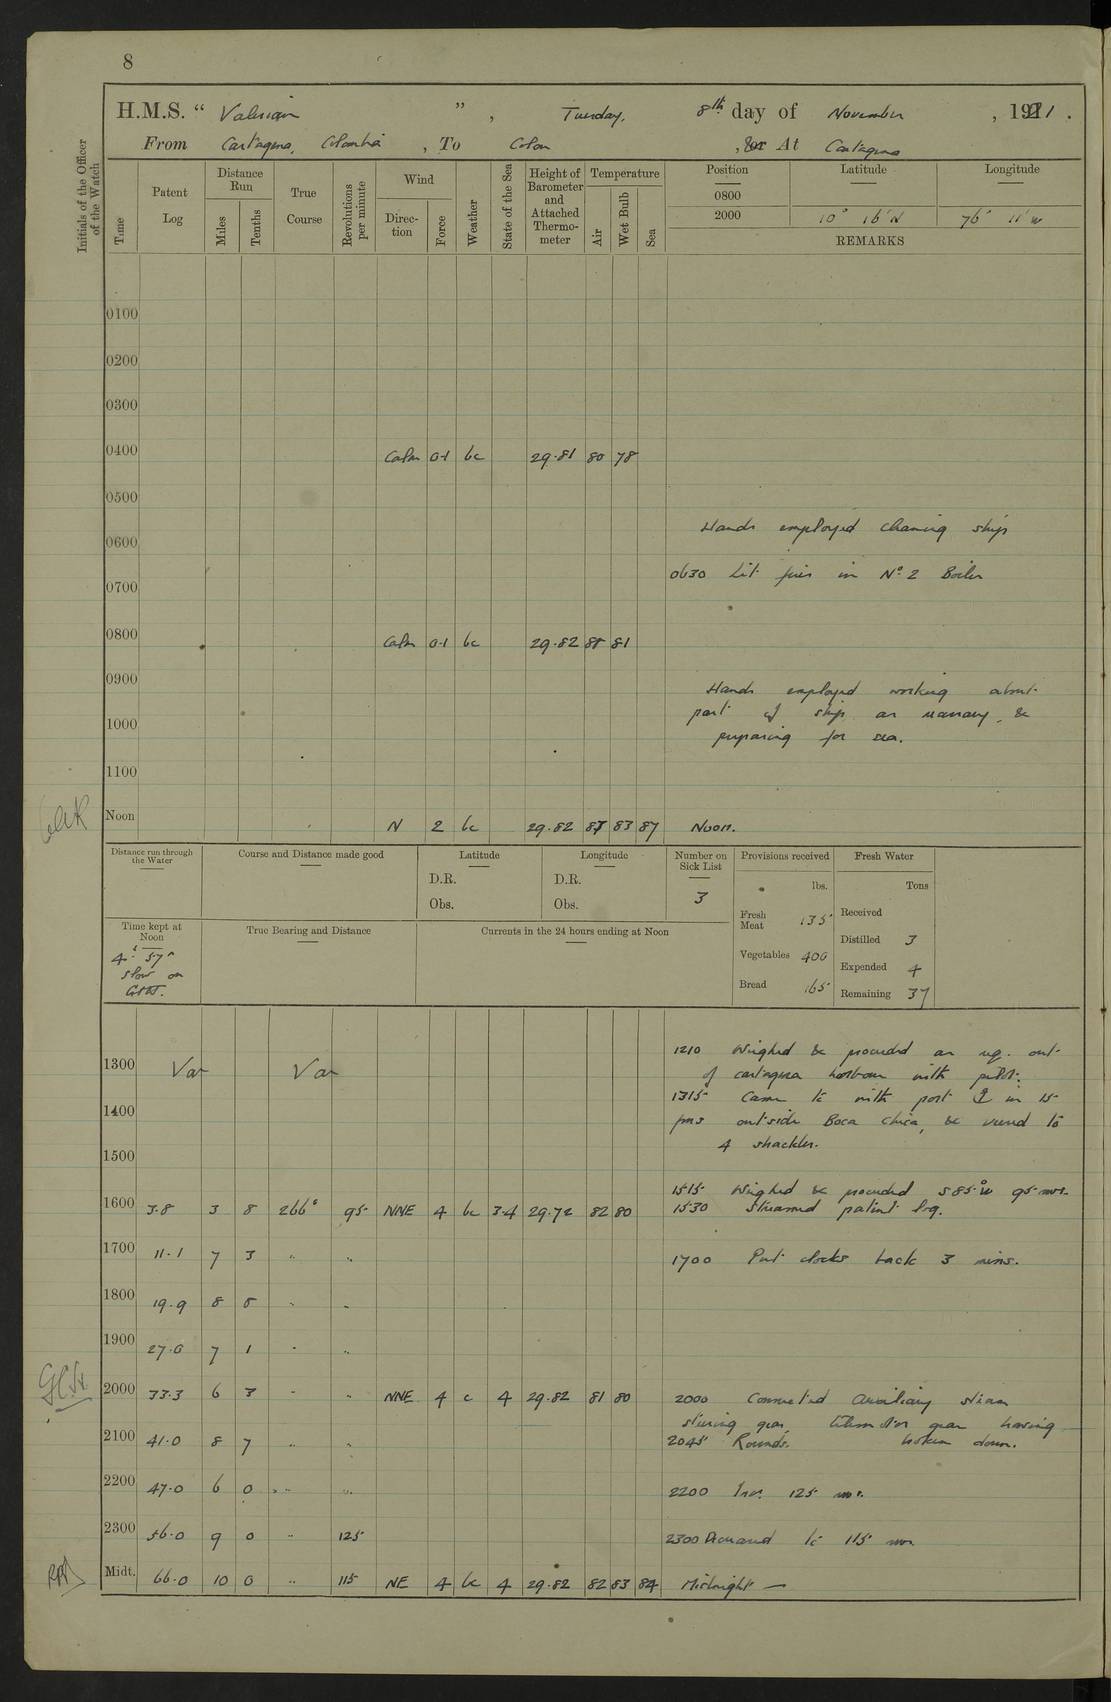 8
H.M.S. “ Valerian ”, Tuesday, 8th day of November, 1921.
From Cartagena, Colombia, To Colon, or At Cartagena
Initials of the Officer of the Watch
Time
Patent Log
Distance Run
Miles
Tenths
True Course
Revolutions per minute
Wind
Direction
Force
Weather
State of the Sea
Height of Barometer and Attached Thermometer
Temperature
Air
Wet Bulb
Sea
Position Latitude Longitude
0800
2000 10° 16' N 76° 11' W
REMARKS
0100
0200
0300
0400 Calm 0-1 bc 29.81 80 78
0500
Hands employed cleaning ship
0600
0630 Lit fires in No. 2 Boiler
0700
0800 Calm 0-1 bc 29.82 85 81
0900
Hands employed working about
part of ship as necessary, &
1000
preparing for sea.
1100
Noon N 2 bc 29.82 87 83 87 Noon.
Distance run through the Water
Course and Distance made good
Latitude
D.R.
Obs.
Longitude
D.R.
Obs.
Number on Sick List
3
Provisions received
lbs.
Fresh Meat 135
Vegetables 400
Bread 165
Fresh Water
Tons
Received
Distilled 3
Expended 4
Remaining 37
Time kept at Noon
4h 57m
slow on
G.M.T.
True Bearing and Distance
Currents in the 24 hours ending at Noon
1210 Weighed & proceeded as req. out
1300 Var Var
of Cartagena harbour with pilot.
1315 Came to with port ⚓ in 15
1400
fms outside Boca Chica, & veered to
4 shackles.
1500
1515 Weighed & proceeded S 85° W 95 revs.
1600 3.8 3 8 266° 95 NNE 4 bc 3-4 29.72 82 80 1530 Streamed patent log.
1700 11.1 7 3 " " 1700 Put clocks back 3 mins.
1800 19.9 8 8 " "
1900 27.0 7 1 " "
2000 33.3 6 3 " " NNE 4 c 4 29.82 81 80 2000 Connected Auxiliary steam
steering gear, telemotor gear having
2100 41.0 8 7 " " 2045 Rounds. broken down.
2200 47.0 6 0 " " 2200 Incr. 125 revs.
2300 56.0 9 0 " 125 2300 Decreased to 115 revs.
Midt. 66.0 10 0 " 115 NE 4 bc 4 29.82 82 83 84 Midnight —